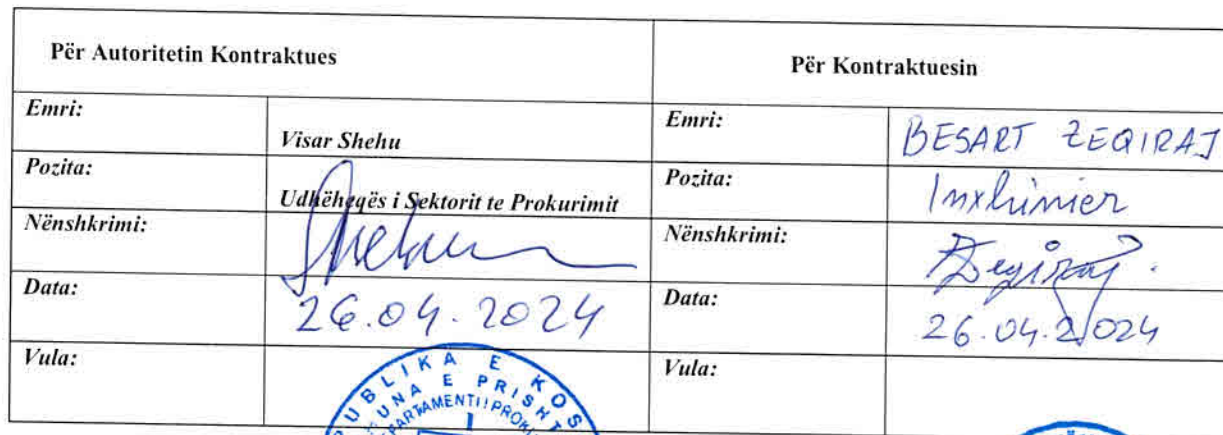 Për Autoritetin Kontraktues
Për Kontraktuesin
Emri: Visar Shehu
Emri: BESART ZEQIRAJ
Pozita: Udhëheqës i Sektorit te Prokurimit
Pozita: Inxhinier
Nënshkrimi: Shehu
Nënshkrimi: Zeqiraj
Data: 26.04.2024
Data: 26.04.2024
Vula:
Vula: